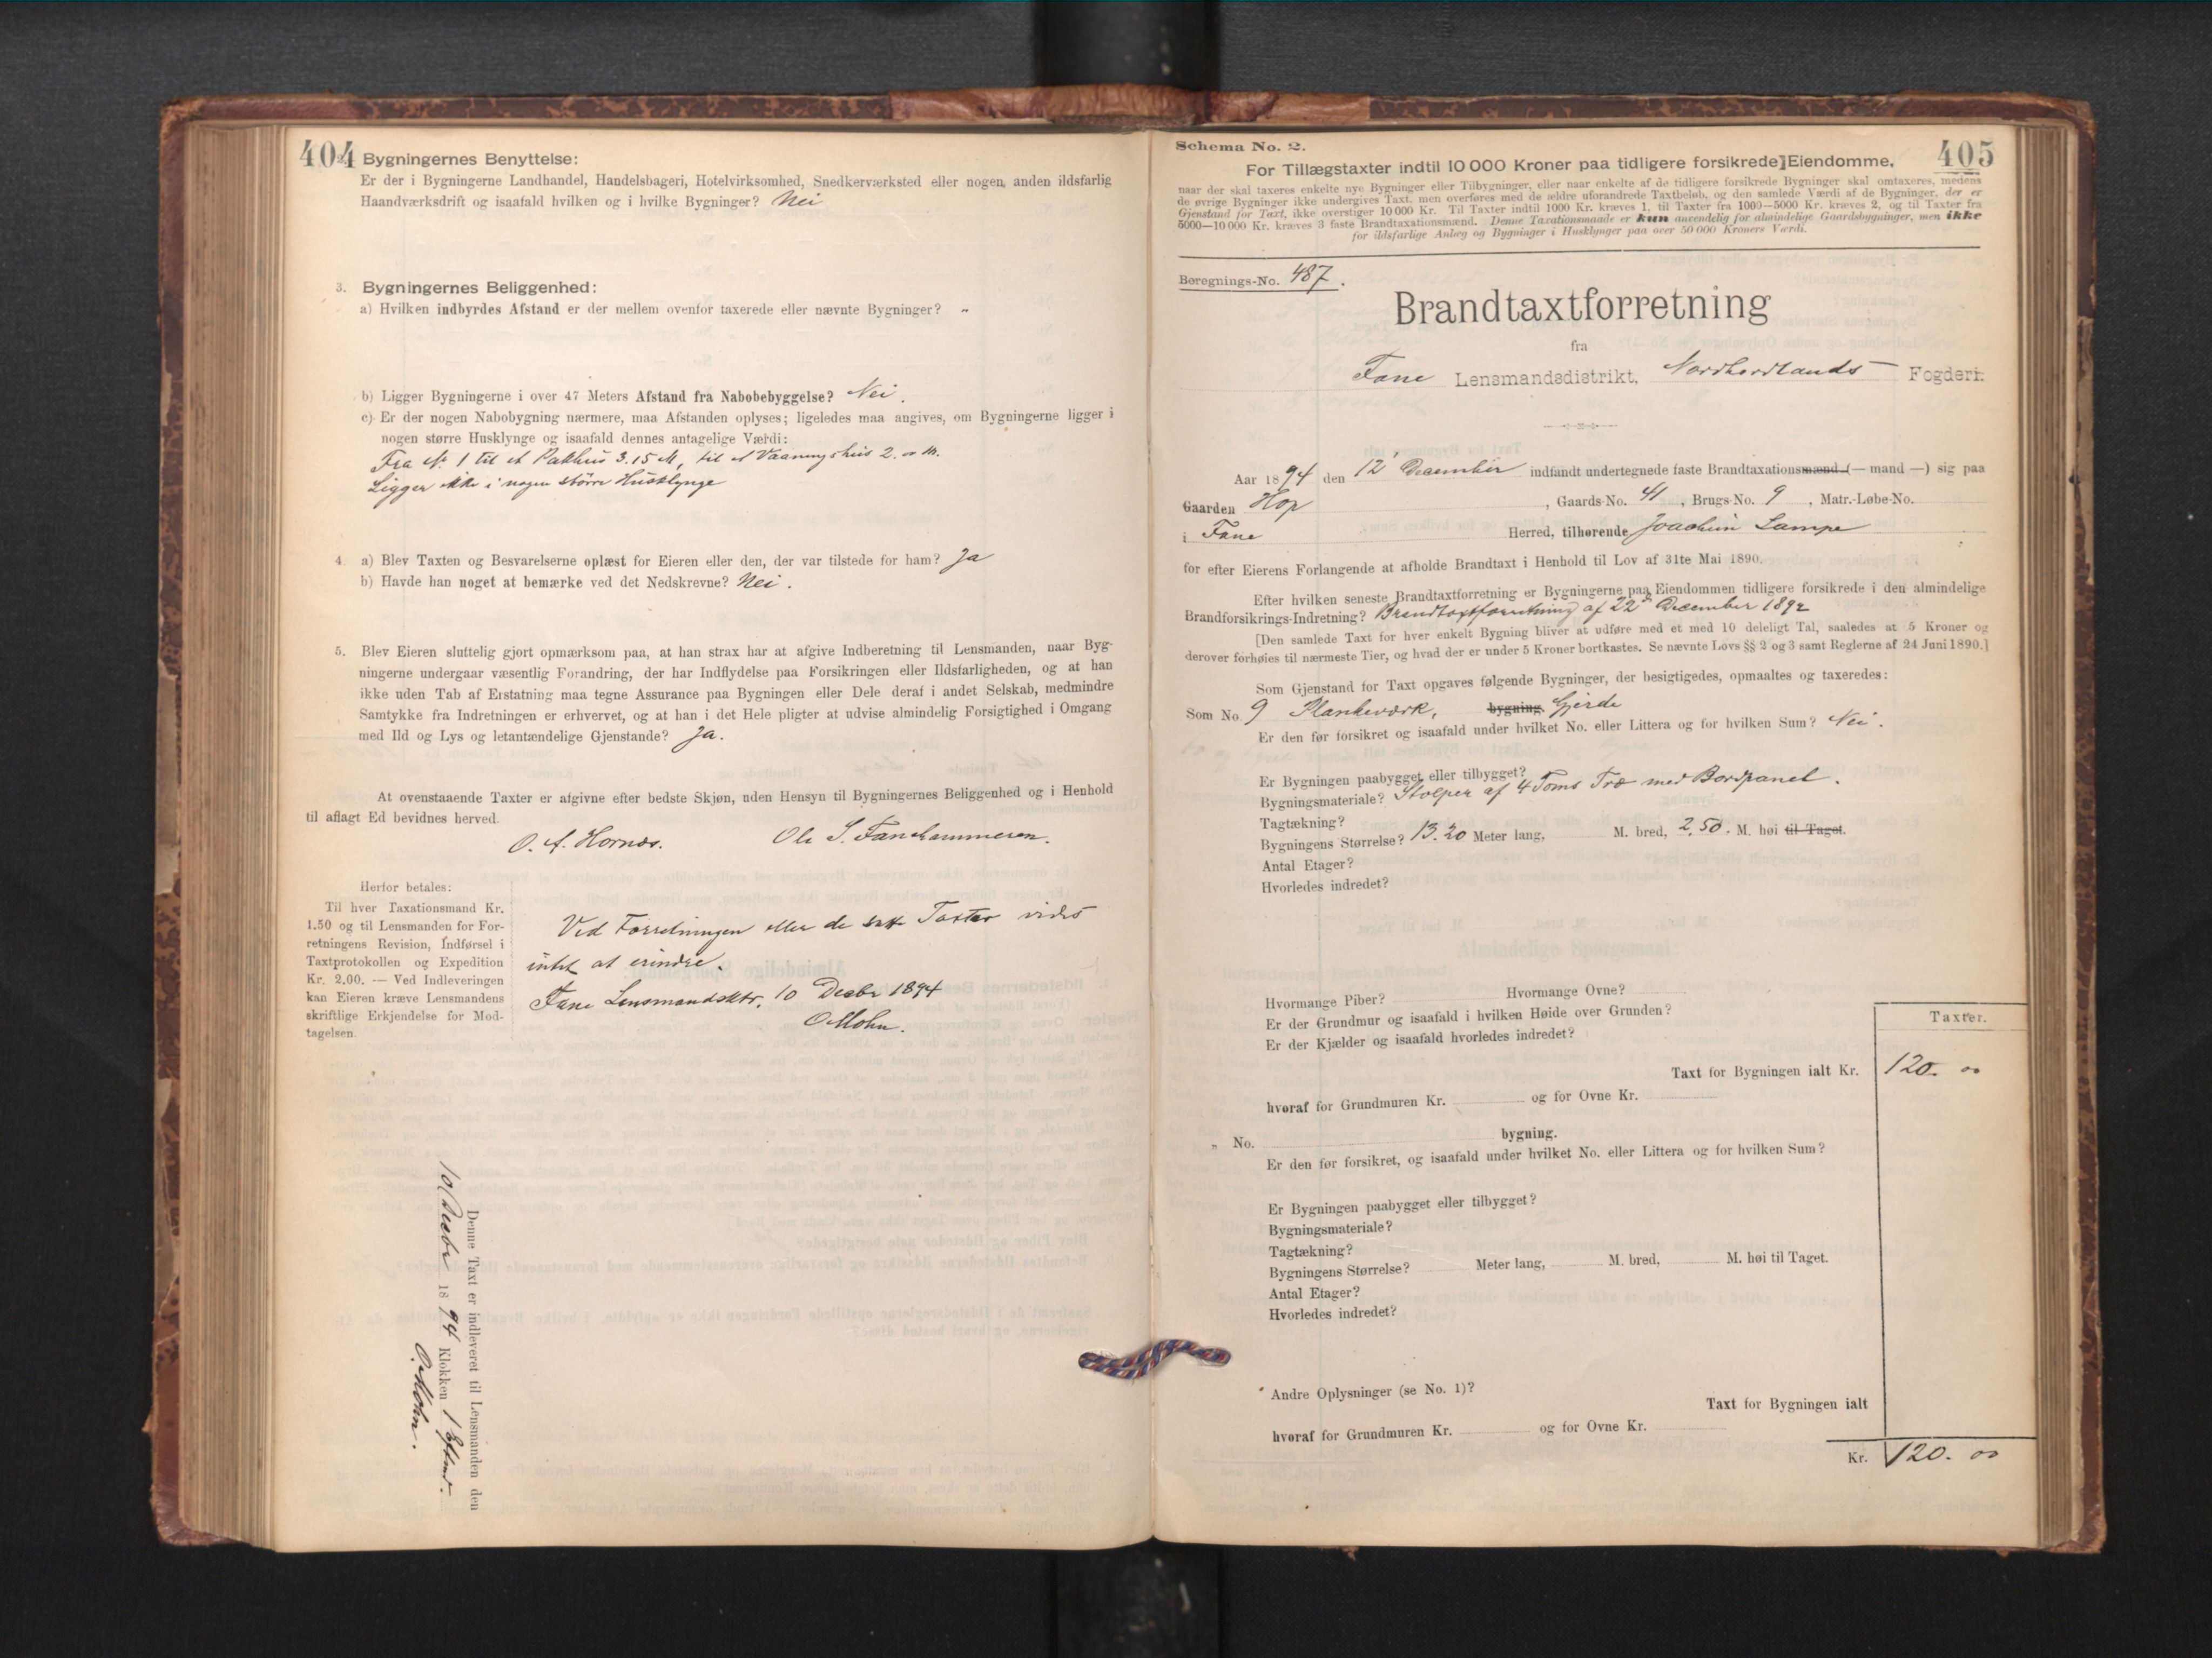 404
2. Bygningernes Benyttelse:
Er der i Bygningerne Landhandel, Handelsbageri, Hotelvirksomhed, Snedkerværksted eller nogen anden ildsfarlig
Haandværksdrift og isaafald hvilken og i hvilke Bygninger? Nei
3. Bygningernes Beliggenhed:
a) Hvilken indbyrdes Afstand er der mellem ovenfor taxerede eller nævnte Bygninger? "
b) Ligger Bygningerne i over 47 Meters Afstand fra Nabobebyggelse? Nei.
c) Er der nogen Nabobygning nærmere, maa Afstanden oplyses; ligeledes maa angives, om Bygningerne ligger i
nogen større Husklynge og isaafald dennes antagelige Værdi:
Fra N. 1 til et Pakhus 3.15 M, til et Vaaningshus 2.00 M.
Ligger ikke i nogen større Husklynge
4. a) Blev Taxten og Besvarelserne oplæst for Eieren eller den, der var tilstede for ham? Ja
b) Havde han noget at bemærke ved det Nedskrevne? Nei.
5. Blev Eieren sluttelig gjort opmærksom paa, at han strax har at afgive Indberetning til Lensmanden, naar Byg-
ningerne undergaar væsentlig Forandring, der har Indflydelse paa Forsikringen eller Ildsfarligheden, og at han
ikke uden Tab af Erstatning maa tegne Assurance paa Bygningen eller Dele deraf i andet Selskab, medmindre
Samtykke fra Indretningen er erhvervet, og at han i det Hele pligter at udvise almindelig Forsigtighed i Omgang
med Ild og Lys og letantændelige Gjenstande? Ja.
At ovenstaaende Taxter er afgivne efter bedste Skjøn, uden Hensyn til Bygningernes Beliggenhed og i Henhold
til aflagt Ed bevidnes herved.
O. A. Hornæs. Ole S. Fanehammeren.
Herfor betales:
Til hver Taxationsmand Kr.
1.50 og til Lensmanden for For-
retningens Revision, Indførsel i
Taxtprotokollen og Expedition
Kr. 2.00. — Ved Indleveringen
kan Eieren kræve Lensmandens
skriftlige Erkjendelse for Mod-
tagelsen.
Ved Forretningen eller de satte Taxter vides
intet at erindre.
Fane Lensmandsktr. 10 Decbr 1894
O Mohn.
Denne Taxt er indleveret til Lensmanden den
10 Decbr 1894 Klokken 1 Efterm.
O. Mohn.
Schema No. 2.
405
For Tillægstaxter indtil 10 000 Kroner paa tidligere forsikrede Eiendomme,
naar der skal taxeres enkelte nye Bygninger eller Tilbygninger, eller naar enkelte af de tidligere forsikrede Bygninger skal omtaxeres, medens
de øvrige Bygninger ikke undergives Taxt, men overføres med de ældre uforandrede Taxtbeløb, og den samlede Værdi af de Bygninger, der er
Gjenstand for Taxt, ikke overstiger 10 000 Kr. Til Taxter indtil 1000 Kr. kræves 1, til Taxter fra 1000—5000 Kr. kræves 2, og til Taxter fra
5000—10 000 Kr. kræves 3 faste Brandtaxationsmænd. Denne Taxationsmaade er kun anvendelig for almindelige Gaardsbygninger, men ikke
for ildsfarlige Anlæg og Bygninger i Husklynger paa over 50 000 Kroners Værdi.
Beregnings-No. 487.
Brandtaxtforretning
fra
Fane Lensmandsdistrikt, Nordhordlands Fogderi.
Aar 1894 den 12' December indfandt undertegnede faste Brandtaxationsmænd (— mand —) sig paa
Gaarden Hop, Gaards-No. 41, Brugs-No. 9, Matr.-Løbe-No.
i Fane Herred, tilhørende Joachim Lampe
for efter Eierens Forlangende at afholde Brandtaxt i Henhold til Lov af 31te Mai 1890.
Efter hvilken seneste Brandtaxtforretning er Bygningerne paa Eiendommen tidligere forsikrede i den almindelige
Brandforsikrings-Indretning? Brandtaxtforretning af 22' December 1892
[Den samlede Taxt for hver enkelt Bygning bliver at udføre med et med 10 deleligt Tal, saaledes at 5 Kroner og
derover forhøies til nærmeste Tier, og hvad der er under 5 Kroner bortkastes. Se nævnte Lovs §§ 2 og 3 samt Reglerne af 24 Juni 1890.]
Som Gjenstand for Taxt opgaves følgende Bygninger, der besigtigedes, opmaaltes og taxeredes:
Som No. 9 Plankeværk, bygning. Gjerde
Er den før forsikret og isaafald under hvilket No. eller Littera og for hvilken Sum? Nei.
Er Bygningen paabygget eller tilbygget?
Bygningsmateriale? Stolper af 4 Toms Træ med Bordpanel.
Tagtækning?
Bygningens Størrelse? 13.20 Meter lang, M. bred, 2.50. M. høi til Taget.
Antal Etager?
Hvorledes indredet?
Hvormange Piber? Hvormange Ovne?
Er der Grundmur og isaafald i hvilken Høide over Grunden?
Er der Kjælder og isaafald hvorledes indredet?
Taxter.
Taxt for Bygningen ialt Kr. 120. 00
hvoraf for Grundmuren Kr. og for Ovne Kr.
„ No. bygning.
Er den før forsikret, og isaafald under hvilket No. eller Littera og for hvilken Sum?
Er Bygningen paabygget eller tilbygget?
Bygningsmateriale?
Tagtækning?
Bygningens Størrelse? Meter lang, M. bred, M. høi til Taget.
Antal Etager?
Hvorledes indredet?
Andre Oplysninger (se No. 1)?
Taxt for Bygningen ialt
hvoraf for Grundmuren Kr. og for Ovne Kr.
Kr. 120. 00